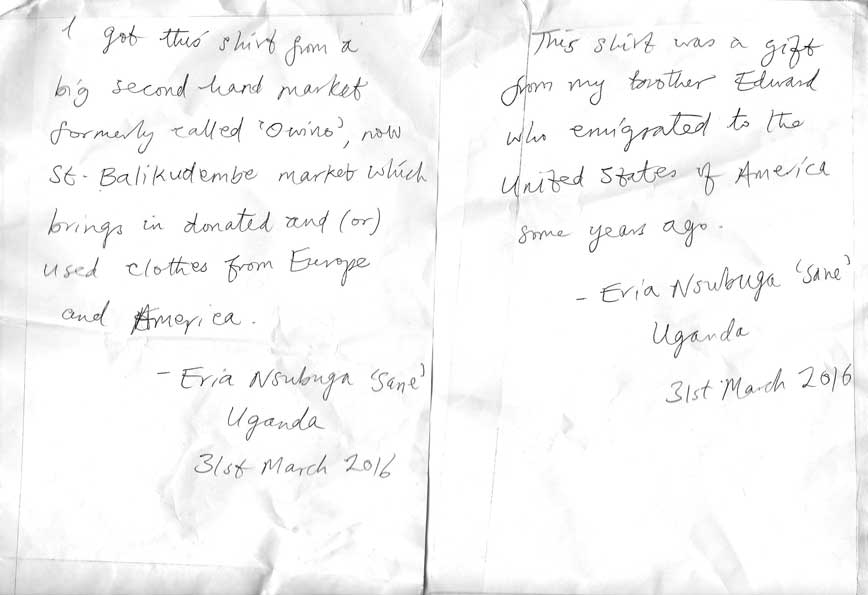 I got this shirt from a
big second hand market
formerly called 'Owino', now
St. Balikudembe market which
brings in donated and (or)
used clothes from Europe
and America.
- Eria Nsubuga 'Sane'
Uganda
31st March 2016
This shirt was a gift
from my brother Edward
who emigrated to the
United States of America
some years ago.
- Eria Nsubuga 'Sane'
Uganda
31st March 2016